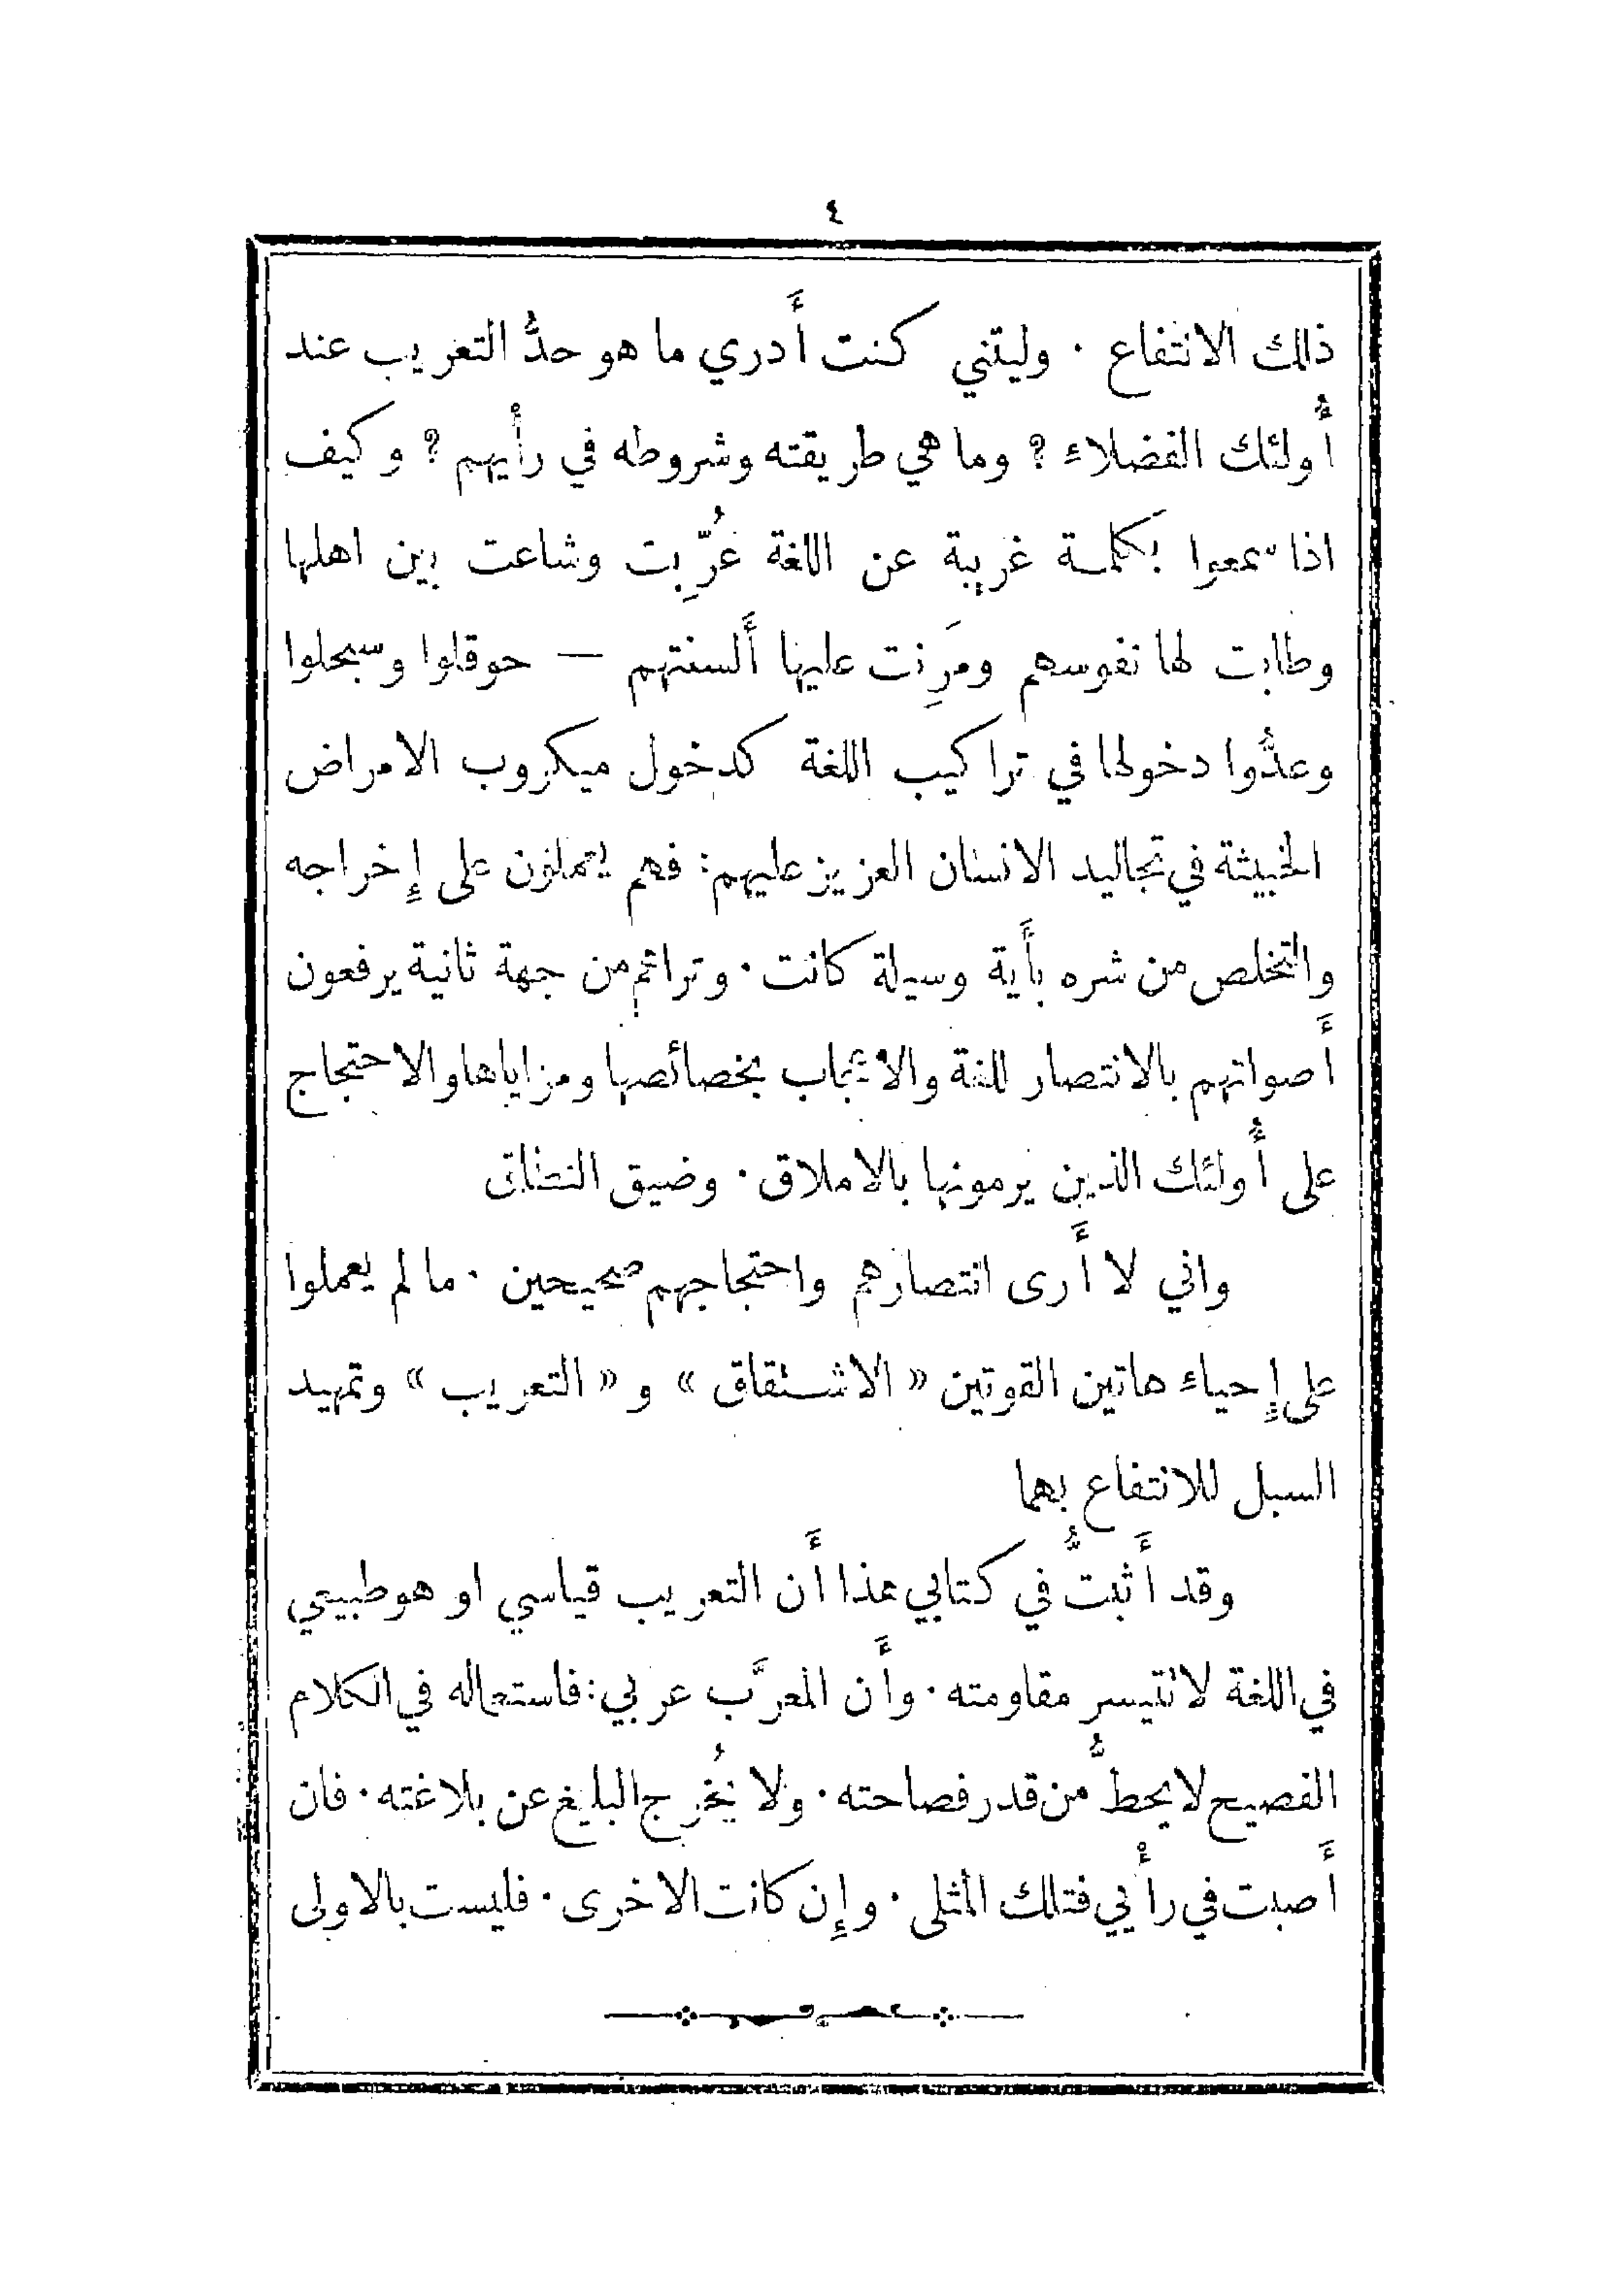 ٤
ذلك الانتفاع · وليتني كنت أَدري ما هو حدُّ التعريب عند
أُولئك الفضلاء ؟ وما هي طريقته وشروطه في رأْيهم ؟ وكيف
اذا سمعوا بكلمة غريبة عن اللغة عُرِّبت وشاعت بين اهلها
وطابت لها نفوسهم ومَرِنت عليها أَلسنتهم — حوقلوا وسبحلوا
وعدُّوا دخولها في تراكيب اللغة كدخول ميكروب الامراض
الخبيثة في تجاليد الانسان العزيز عليهم : فهم يتملون على إِخراجه
والتخلص من شره بأَية وسيلة كانت · وتراهم من جهة ثانية يرفعون
أَصواتهم بالانتصار للغة والاعجاب بخصائصها ومزاياها والاحتجاج
على أُولئك الذين يرمونها بالاملاق · وضيق النطاق
واني لا أَرى انتصارهم واحتجاجهم صحيحين · ما لم يعملوا
على إِحياء هاتين القوتين « الاشتقاق » و « التعريب » وتمهيد
السبل للانتفاع بهما
وقد أَثبتُّ في كتابي هذا أَن التعريب قياسي او هو طبيعي
في اللغة لا تتيسر مقاومته · وأَن المعرَّب عربي : فاستعماله في الكلام
الفصيح لا يحطُّ من قدر فصاحته · ولا يُخرج البليغ عن بلاغته · فان
أَصبت في رأْيي فتلك المثلى · وإِن كانت الاخرى · فليست بالاولى